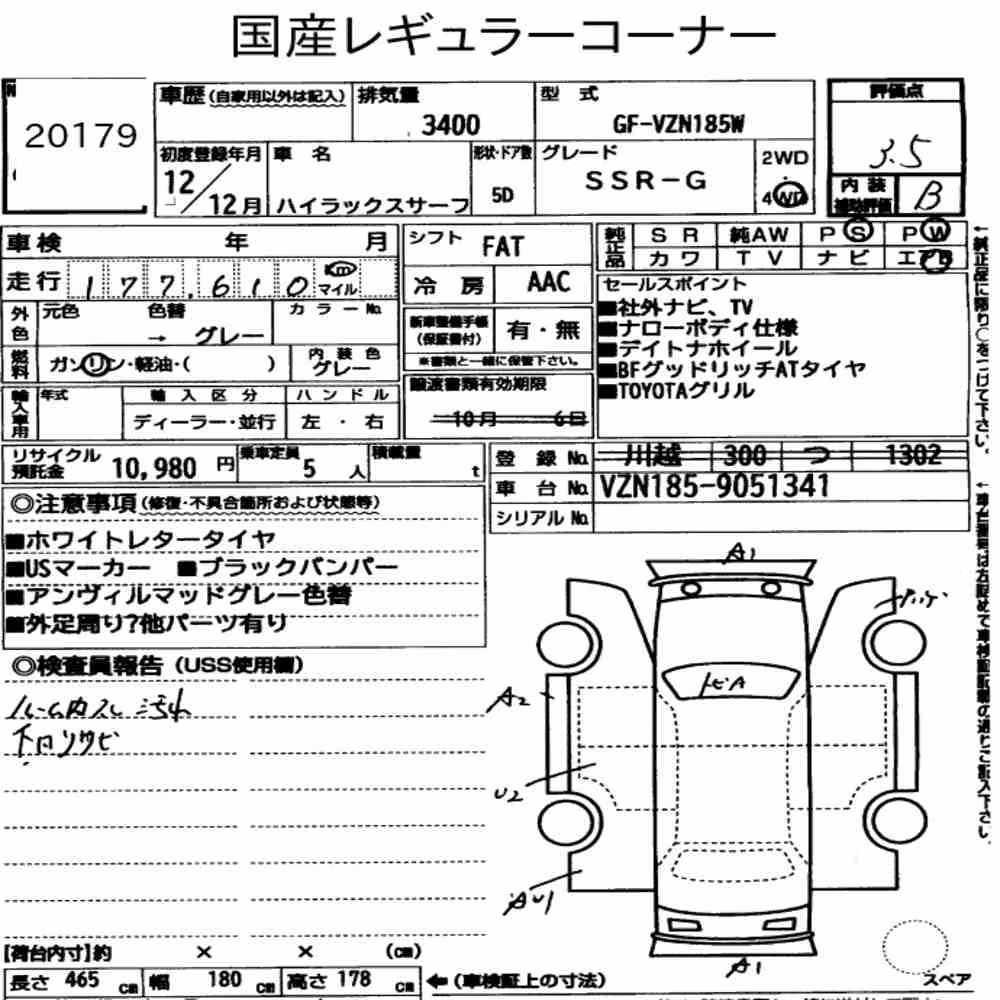 国産レギュラーコーナー
20179
車歴 (自家用以外は記入) 排気量 型 式 評価点
3400 GF-VZN185W 3.5
初度登録年月 車 名 形状・ドア数 グレード 2WD 内 装 補助評価 B
12/12月 ハイラックスサーフ 5D SSR-G 4WD
車検 年 月 シフト FAT 純正品 SR 純AW PS PW
カワ TV ナビ エアB
走行 177,610 Km マイル 冷 房 AAC
外色 元色 色替 → グレー カラーNo.
新車整備手帳 (保証書付) 有・無
※書類と一緒に保管下さい。
燃料 ガソリン・軽油・( ) 内 装 色 グレー
譲渡書類有効期限
10月 6日
輸入車用 年式 輸 入 区 分 ハ ン ド ル
ディーラー・並行 左 ・右
セールスポイント
■社外ナビ、TV
■ナローボディ仕様
■デイトナホイール
■BFグッドリッチATタイヤ
■TOYOTAグリル
リサイクル預託金 10,980 円 乗車定員 5 人 積載量 t
登 録 No. 川越 300 つ 1302
車 台 No. VZN185-9051341
シリアル No.
◎注意事項 (修復・不具合箇所および状態等)
■ホワイトレタータイヤ
■USマーカー ■ブラックバンパー
■アンヴィルマッドグレー色替
■外足周り?他パーツ有り
◎検査員報告 (USS使用欄)
ルーム内スレ 汚れ
下回りサビ
A1
トビA
A2
U2
AU1
A1
スペア
【荷台内寸】約 × × (cm)
長さ 465 cm 幅 180 cm 高さ 178 cm ← (車検証上の寸法)